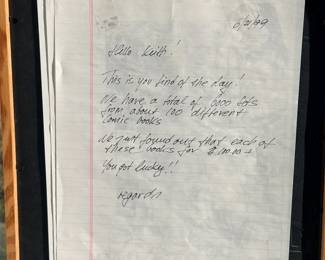 Hello Keith!
This is you find of the day!
We have a total of 6000 lots
from about 100 different
comic books
We just found out that each of
these books for $
You got lucky!!
regards